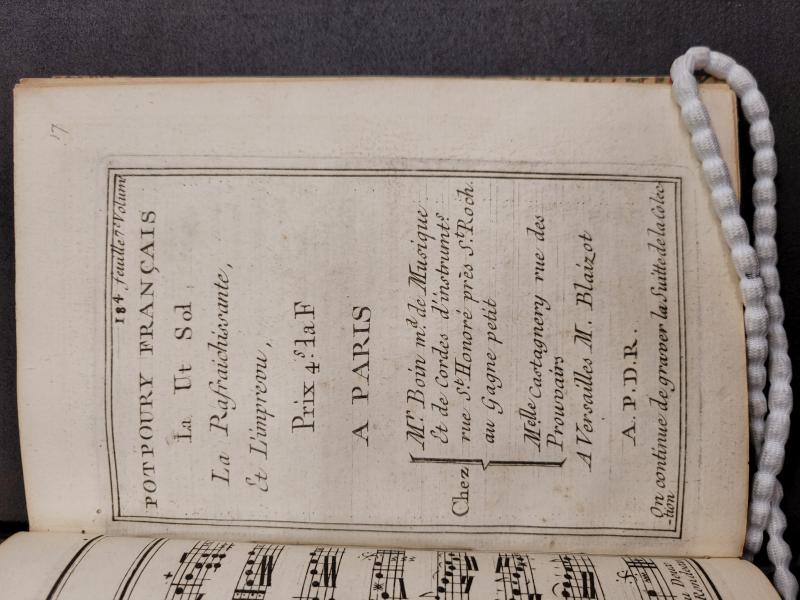 17
184. feuille 7e Volum
POTPOURY FRANÇAIS
La Ut Sol
La Rafraichissante,
Et L'imprevu,
Prix 4.s la F
A PARIS
Chez
Mr. Boin md. de Musique
Et de Cordes d'instrumts
rue St Honoré près St. Roch.
au Gagne petit
Melle Castagnery rue des
Prouvairs
A Versailles M. Blaizot
A. P. D. R.
On continue de graver la Suitte de la Colec
-tion